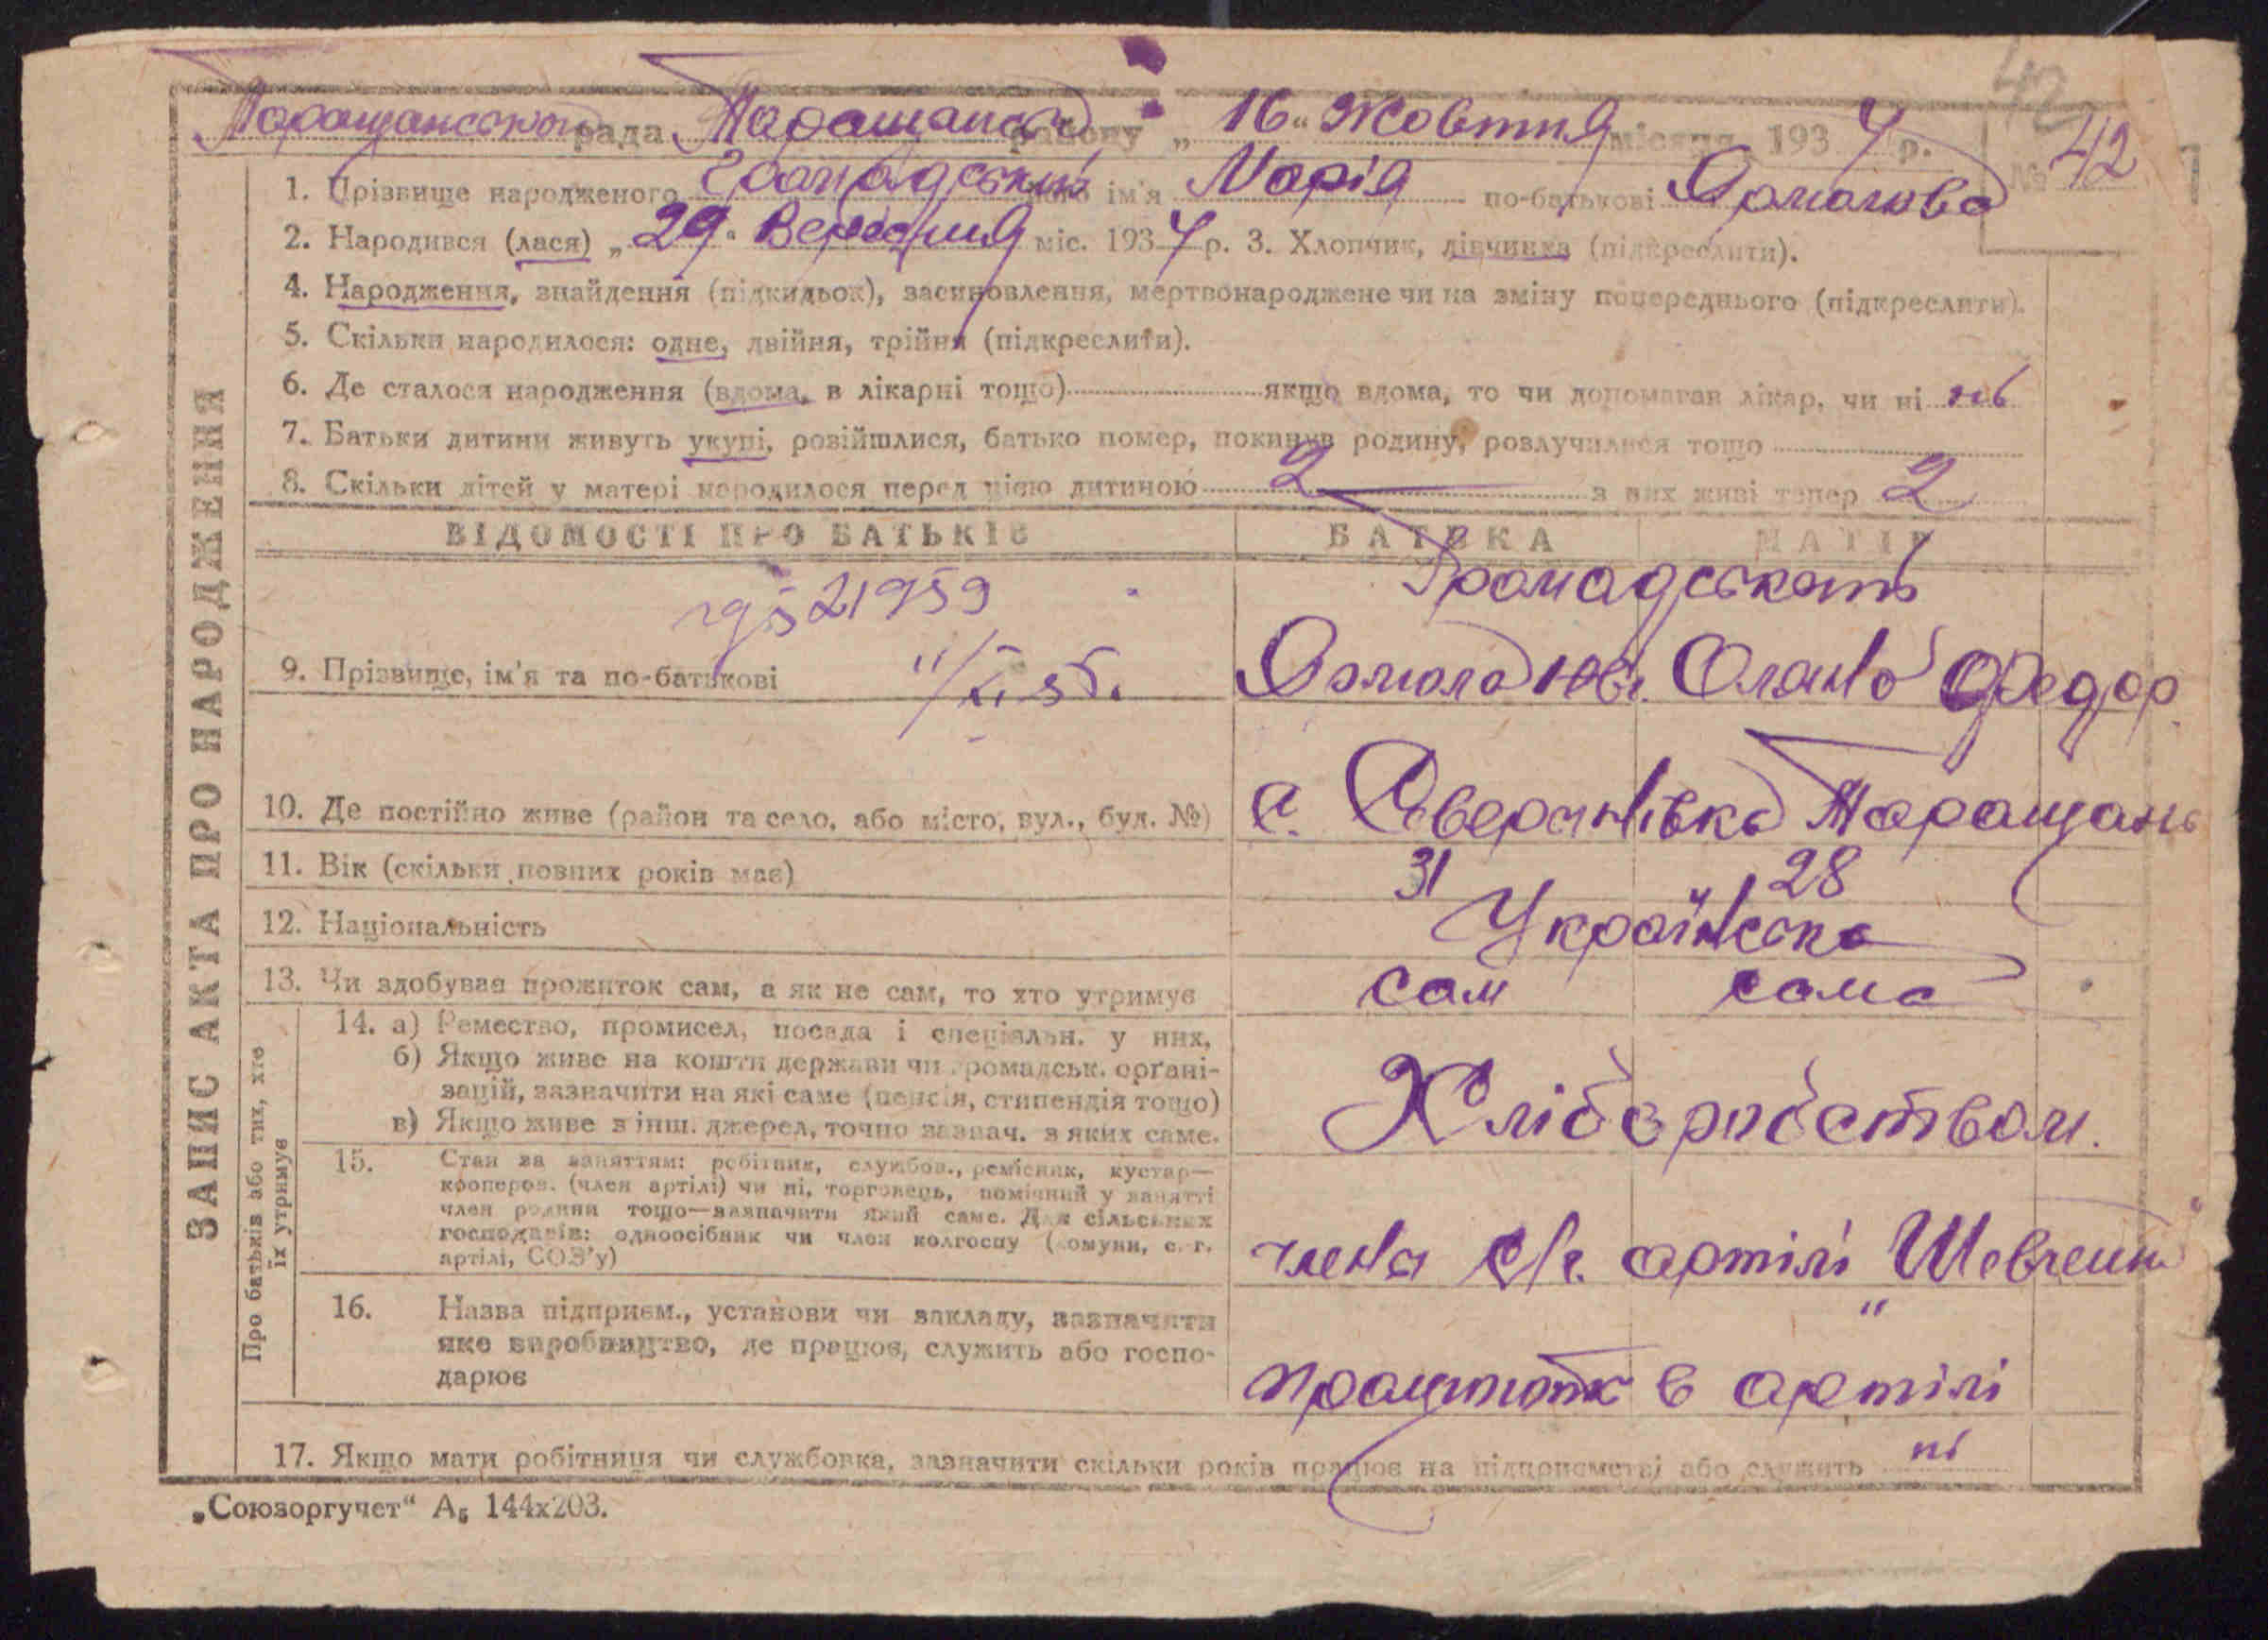 Таращанської рада Таращансь району „16“ Жовтня місяця 1934 р. № 42
42
1. Прізвище народженого Громадський його ім'я Марія по-батькові Ярмолова
2. Народився (лася) „29“ Вересня міс. 1934 р. 3. Хлопчик, дівчинка (підкреслити).
4. Народження, знайдення (підкидьок), засиновлення, мертвонароджене чи на зміну попереднього (підкреслити).
5. Скільки народилося: одне, двійня, трійня (підкреслити).
6. Де сталося народження (вдома, в лікарні тощо) якщо вдома, то чи допомагав лікар, чи ні ні
7. Батьки дитини живуть укупі, розійшлися, батько помер, покинув родину, розлучилися тощо
8. Скільки дітей у матері народилося перед цією дитиною 2 з них живі тепер 2
ВІДОМОСТІ ПРО БАТЬКІВ БАТЬКА МАТІР
21959
Громадська
9. Прізвище, ім'я та по-батькові Ярмола Юхи. Оляна Федор
10. Де постійно живе (район та село, або місто, вул., буд. №) с. Северинівка Таращань
11. Вік (скільки повних років має) 31 28
12. Національність Українська
13. Чи здобуває прожиток сам, а як не сам, то хто утримує сам сама
14. а) Ремество, промисел, посада і спеціальн. у них,
б) Якщо живе на кошти держави чи громадськ. орґані-
зацій, зазначити на які саме (пенсія, стипендія тощо)
в) Якщо живе з інш. джерел, точно зазнач. з яких саме.
Хліборобством.
15. Стан за заняттям: робітник, службов., ремісник, кустар—
кооперов. (член артілі) чи ні, торговець, помічний у занятті
член родини тощо—зазначити який саме. Для сільських
господарів: одноосібник чи член колгоспу (комуни, с.-г.
артілі, СОЗ'у)
члена с/г. артілі Шевченка
16. Назва підприєм., установи чи закладу, зазначити
яке виробництво, де працює, служить або госпо-
дарює
працюють в артілі
17. Якщо мати робітниця чи службовка, зазначити скільки років працює на підприємстві або служить ні
ЗАПИС АКТА ПРО НАРОДЖЕННЯ
Про батьків або тих, хто
їх утримує
„Союзоргучет“ А₅ 144х203.